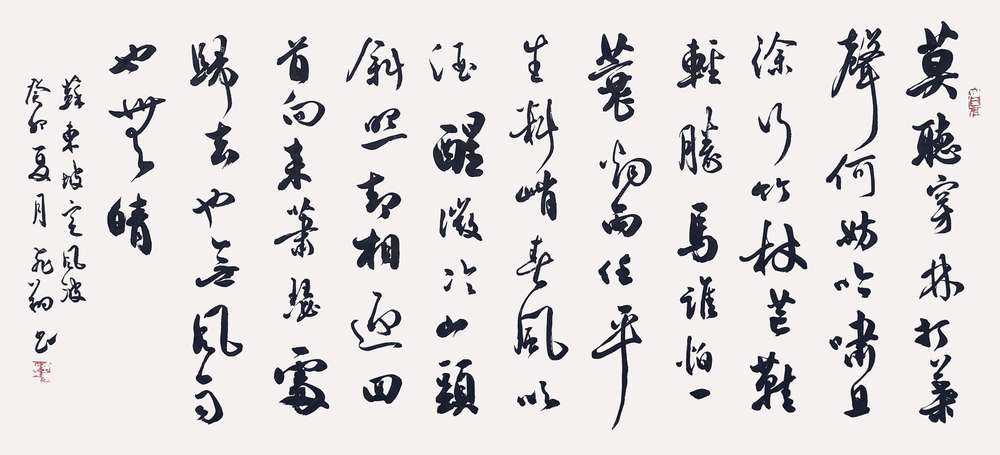 莫聽穿林打葉
聲何妨吟嘯且
徐行竹杖芒鞋
輕勝馬誰怕一
蓑烟雨任平
生料峭春風吹
酒醒微冷山頭
斜照却相迎回
首向来蕭瑟處
歸去也無風雨
也無晴
蘇東坡定風波
癸卯夏月飛翔書